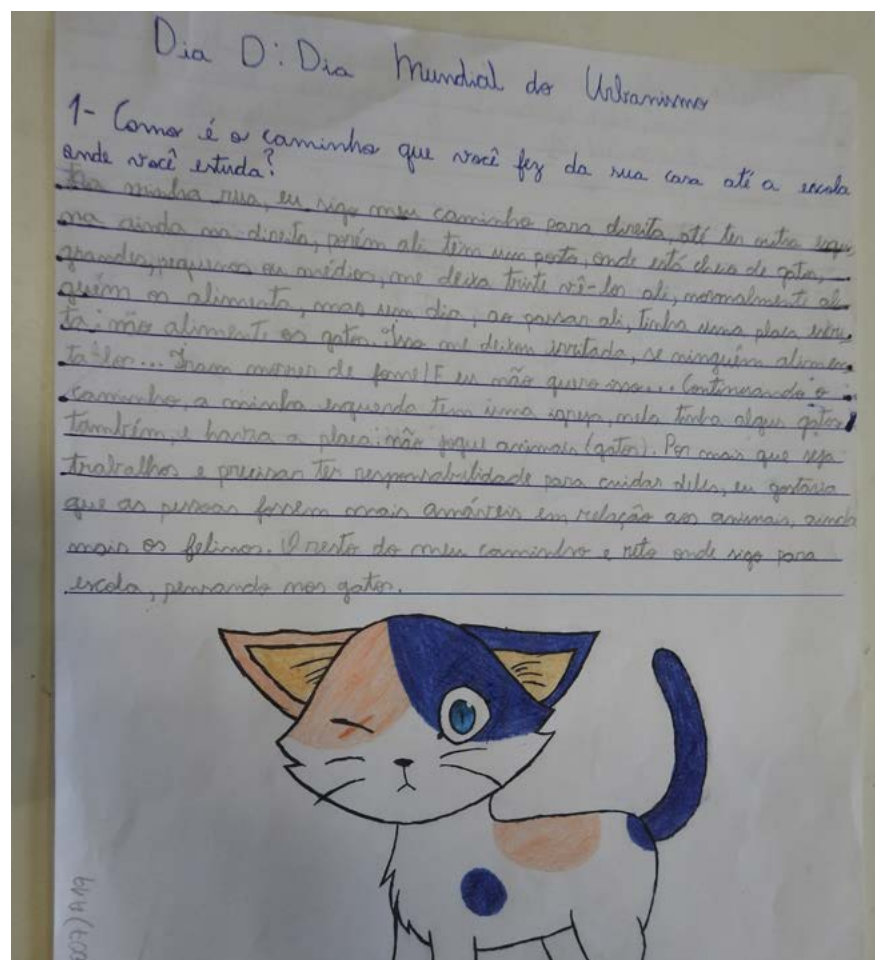 Dia D: Dia Mundial do Urbanismo
1- Como é o caminho que você fez da sua casa até a escola
onde você estuda?
Da minha rua, eu sigo meu caminho para direita, até ter outra esqui,
na ainda na direita, porém ali tem um posto, onde está cheio de gatos,
grandes, pequenos ou médios, me deixa triste vê-los ali, normalmente al
guém os alimenta, mas um dia, ao passar ali, tinha uma placa escri
ta: não alimente os gatos. Isso me deixou irritada, se ninguém alimen
ta-los... Iram morrer de fome! E eu não quero isso... Continuando o
caminho, a minha esquerda tem uma igreja, nela tinha algus gatos
também, e havia a placa: não jogue animais (gatos). Por mais que seja
trabalhos e precisar ter responsabilidade para cuidar deles, eu gostaria
que as pessoas fossem mais amáveis em relação aos animais, ainda
mais os felinos. O resto do meu caminho e reto onde sigo para
escola, pensando nos gatos.